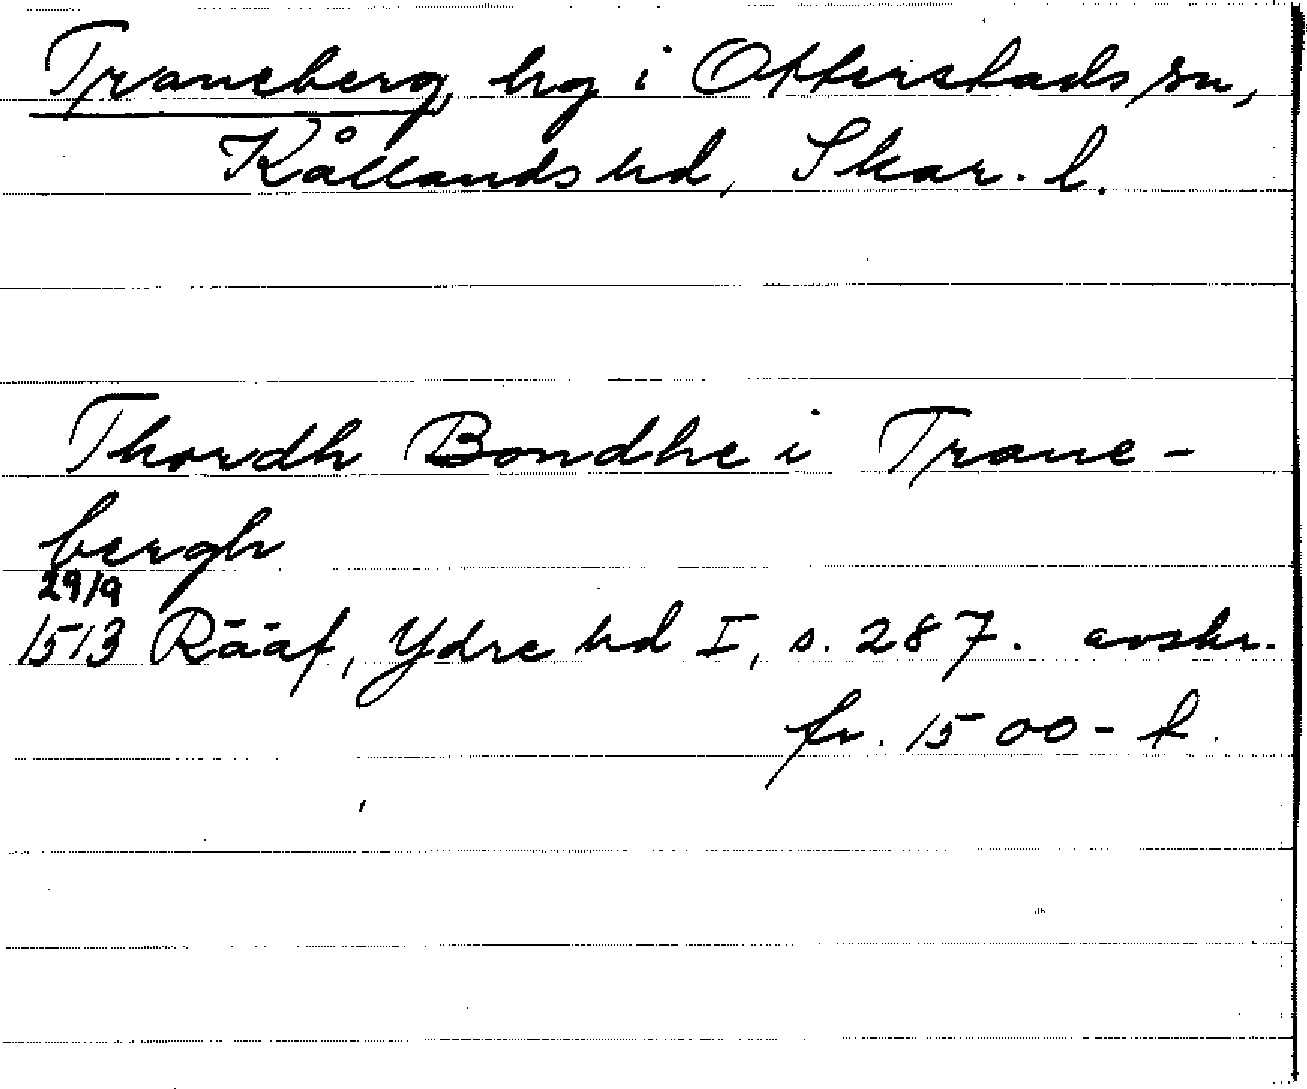 Traneberg, hg i Otterstads sn,
Kållands hd, Skar. l.
Thordh Bondhe i Trane-
bergh
29/9
1513 Rääf, Ydre hd I, s. 287. avskr.
fr. 1500-t.